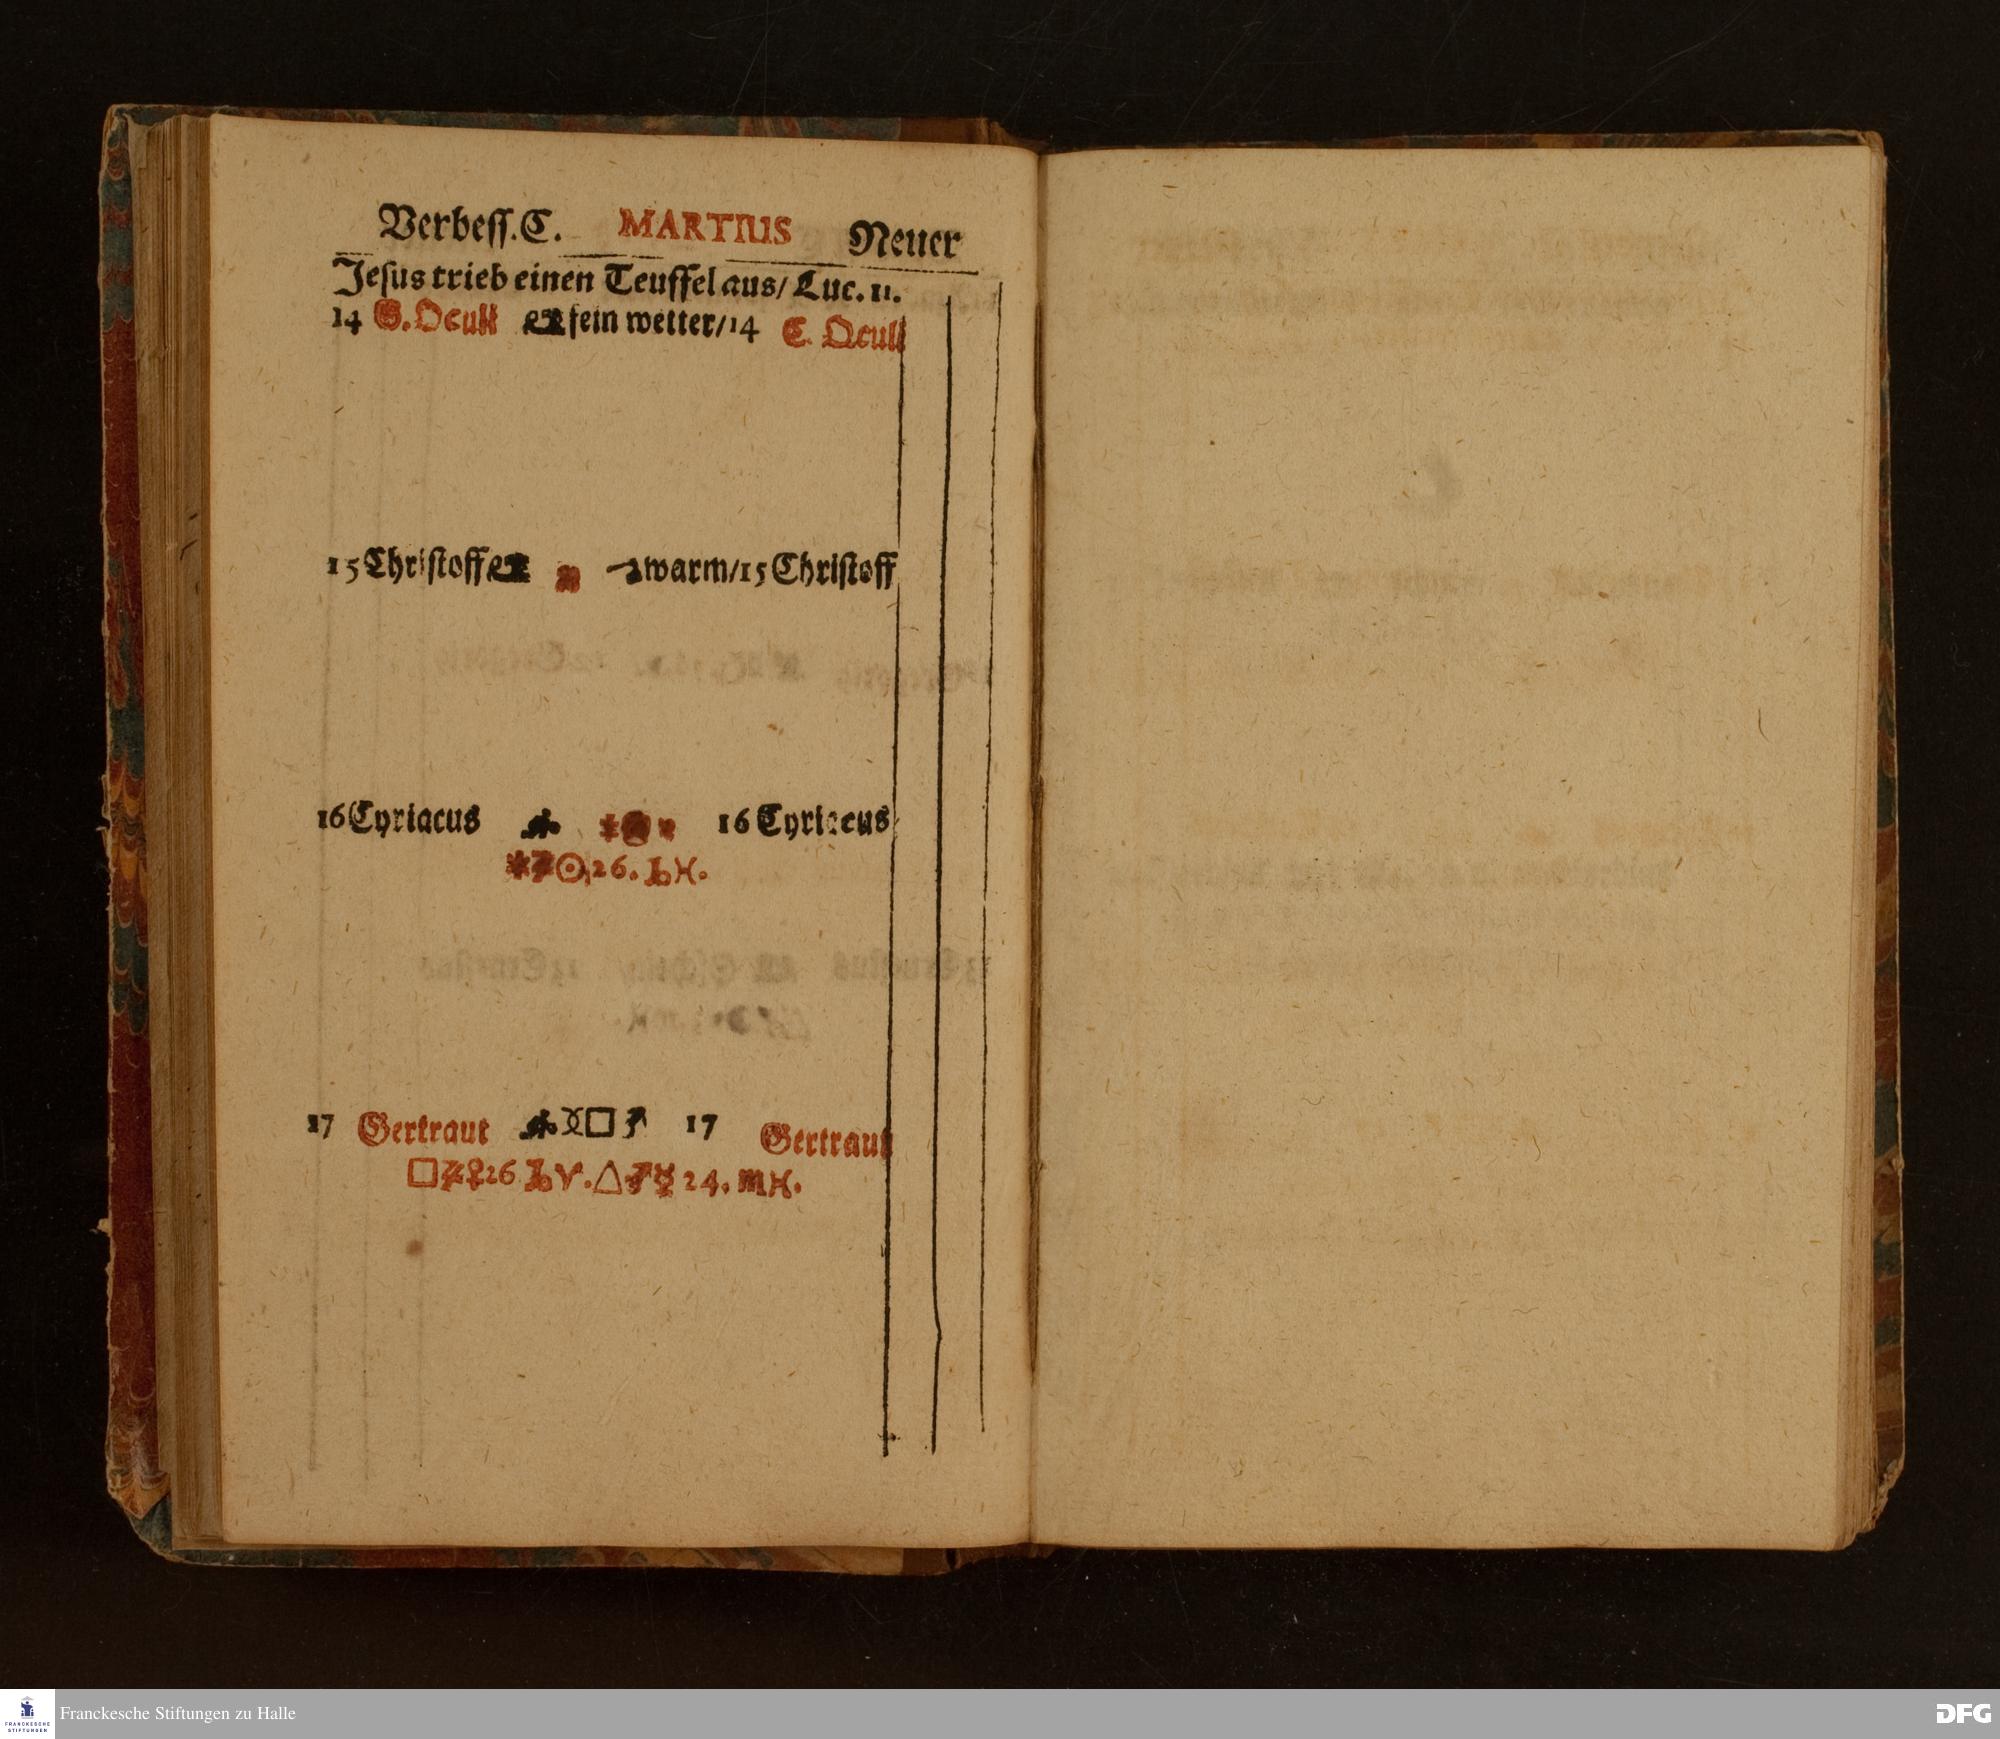 Verbeſſ. C. MARTIUS Neuer
Jeſus trieb einen Teuffel aus / Luc. 11.
14 G. Oculi fein wetter / 14 C. Oculi
15 Chriſtoff warm / 15 Chriſtoff
16 Cyriacus 16 Cyriacus
☉ 26. ♄ ♓.
17 Gertraut □ 17 Gertraut
□ ♀ 26 ♄ ♈. △ ☿ 24. ♏ ♓.
Franckesche Stiftungen zu Halle
FRANCKESCHE STIFTUNGEN
DFG